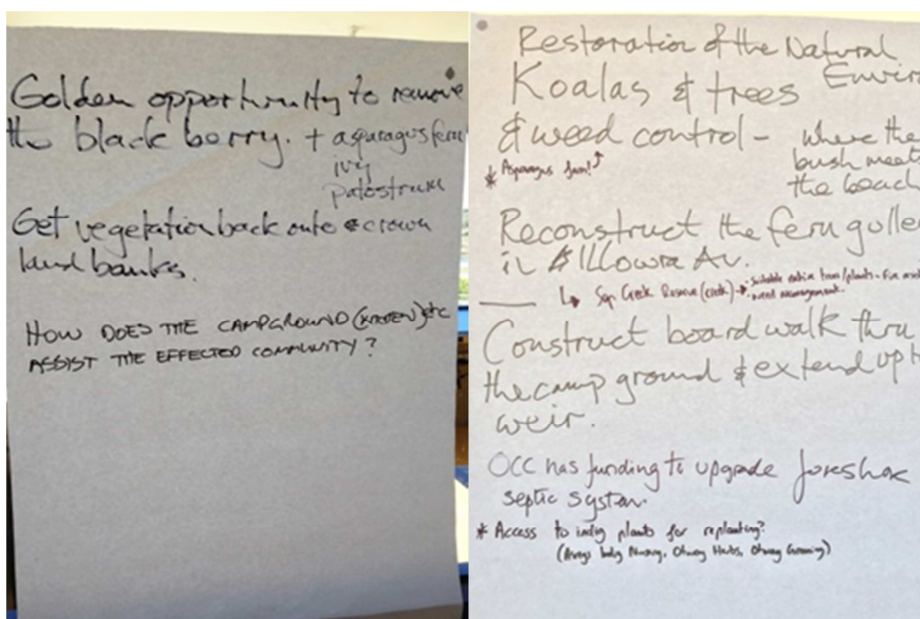 Golden opportunity to remove
the black berry. + asparagus fern
ivy
patostrum
Get vegetation back onto crown
land banks.
HOW DOES THE CAMPGROUND (KITCHEN) etc
ASSIST THE EFFECTED COMMUNITY?
Restoration of the Natural
Envir
Koalas & trees
& weed control - where the
bush meets
the beach
* Asparagus fern!
Reconstruct the fern gulle
in Illowra Av.
Creek Reserve (creek) → suitable native trees/plants -
- weed management.
Construct board walk thru
the camp ground & extend up t
weir.
OCC has funding to upgrade foreshore
septic system.
* Access to indig plants for replanting?